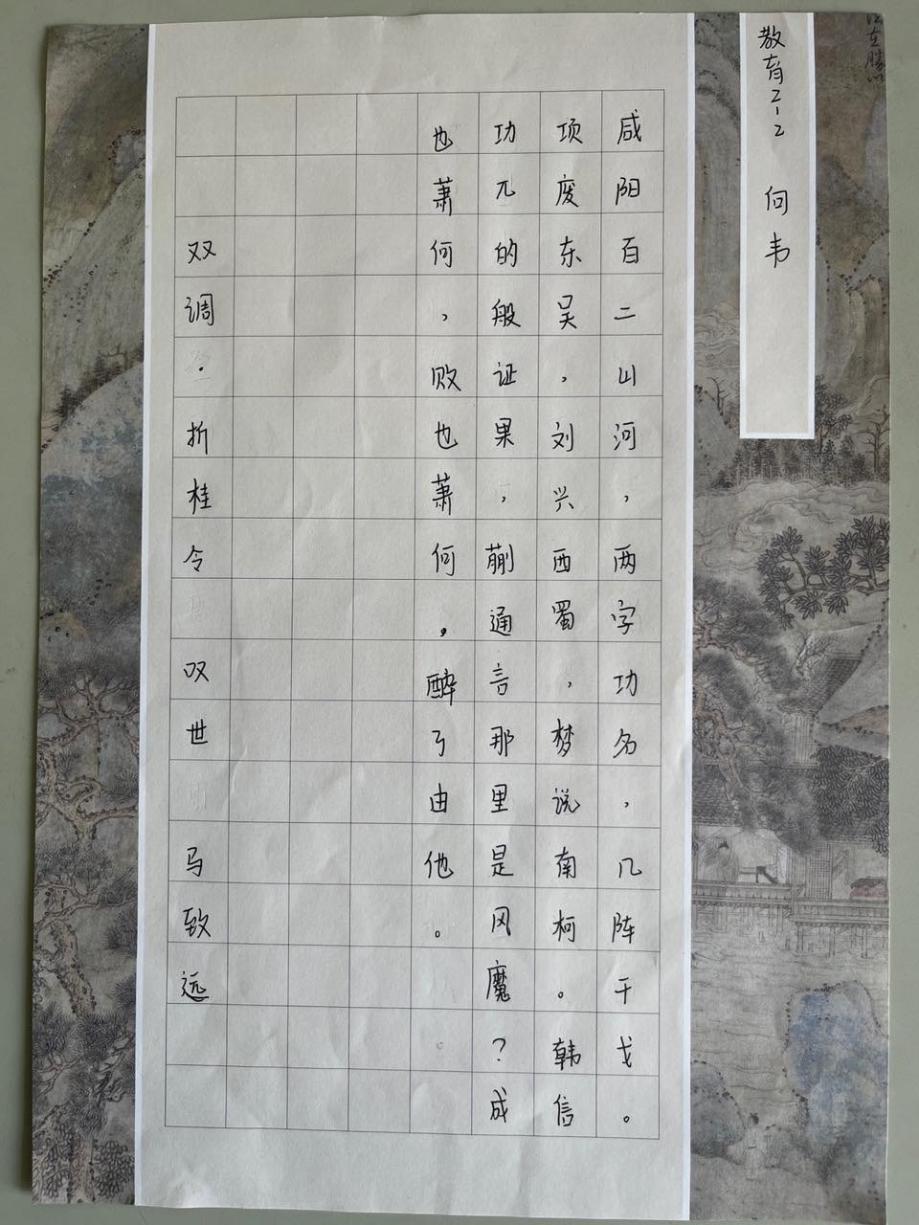 教育2-2 何韦
咸阳百二山河，两字功名，几阵干戈。
项废东吴，刘兴西蜀，梦说南柯。韩信
功兀的般证果，蒯通言那里是风魔？成
也萧何，败也萧何，醉了由他。
双调·折桂令 叹世 马致远